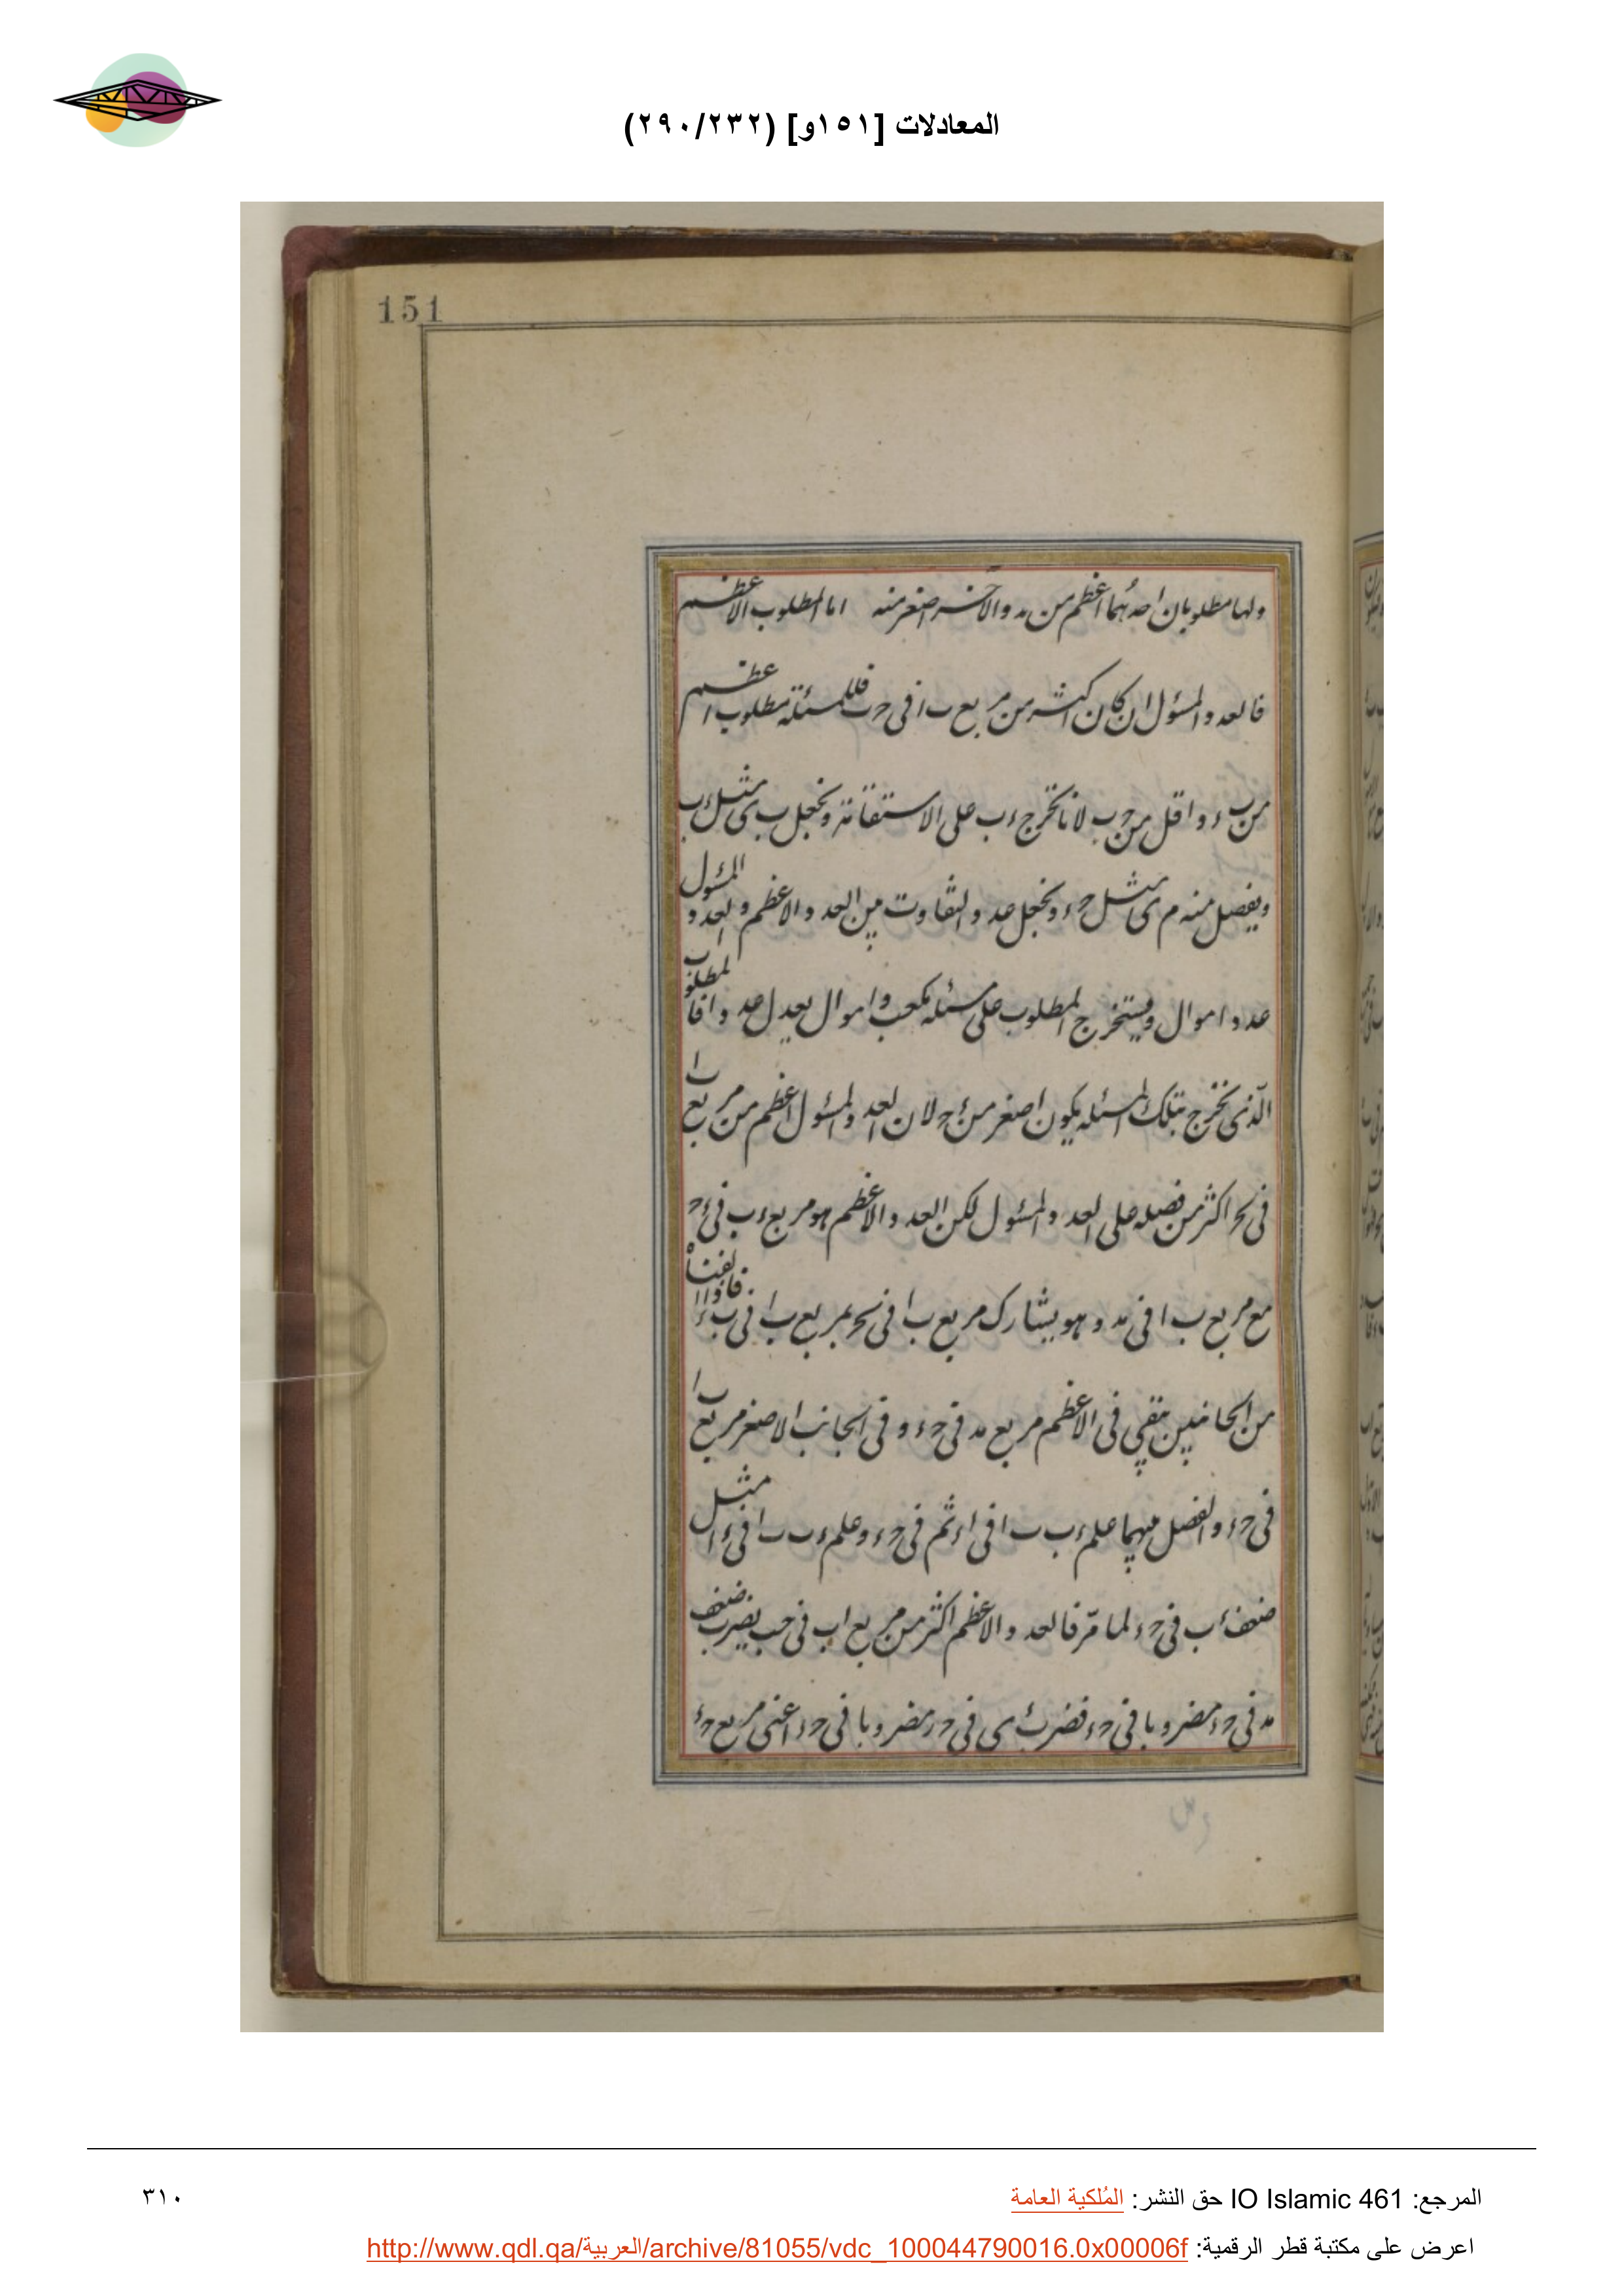 المعادلات [١٥١و] (٢٩٠/٢٣٢)
151
ولها مطلوبان احدهما اعظم من مد والآخر اصغر منه اما المطلوب الاعظم
فالعدد المسئول ان كان اكثر من مربع ب ا فى ح ب فللمسئلة مطلوب اعظم
من ب ء واقل من ح ب لانا نخرج ء ب على الاستقامة ونجعل ب ى مثل ء ب
ويفصل منه م ى مثل ح ء ونجعل عدد التفاوت بين العدد الاعظم والعدد المسئول
عدد اموال ويستخرج المطلوب على مسئلة مكعب واموال يعدل عددا فالمطلوب
الذى نخرج بتلك المسئله يكون اصغر من ء ح لان العدد المسئول اعظم من مربع ب ا
فى ح اكثر من فضله على العدد المسئول لكن العدد الاعظم هو مربع ء ب فى ء ح
مع مربع ب ا فى مد وهو يشارك مربع ب ا فى ح بمربع ب ا فى ب ء فاذا القيناه
من الجانبين بقى فى الاعظم مربع مد فى ح ء و فى الجانب الاصغر مربع ب ا
فى ح ء والفضل بينهما علم ء ب ب ا فى ا ء ثم فى ح ء وعلم ء ب ب ا فى ء ا مثل
ضعف ء ب فى ح ء لما مر فالعدد الاعظم اكثر من مربع اب فى حب بضرب ضعف
مد فى ح ء مضروبا فى ح ء فضرب ى فى ح ر مضروبا فى ح ء اعنى مربع ح ء
المرجع: IO Islamic 461 حق النشر: المُلكية العامة
٣١٠
اعرض على مكتبة قطر الرقمية: http://www.qdl.qa/العربية/archive/81055/vdc_100044790016.0x00006f